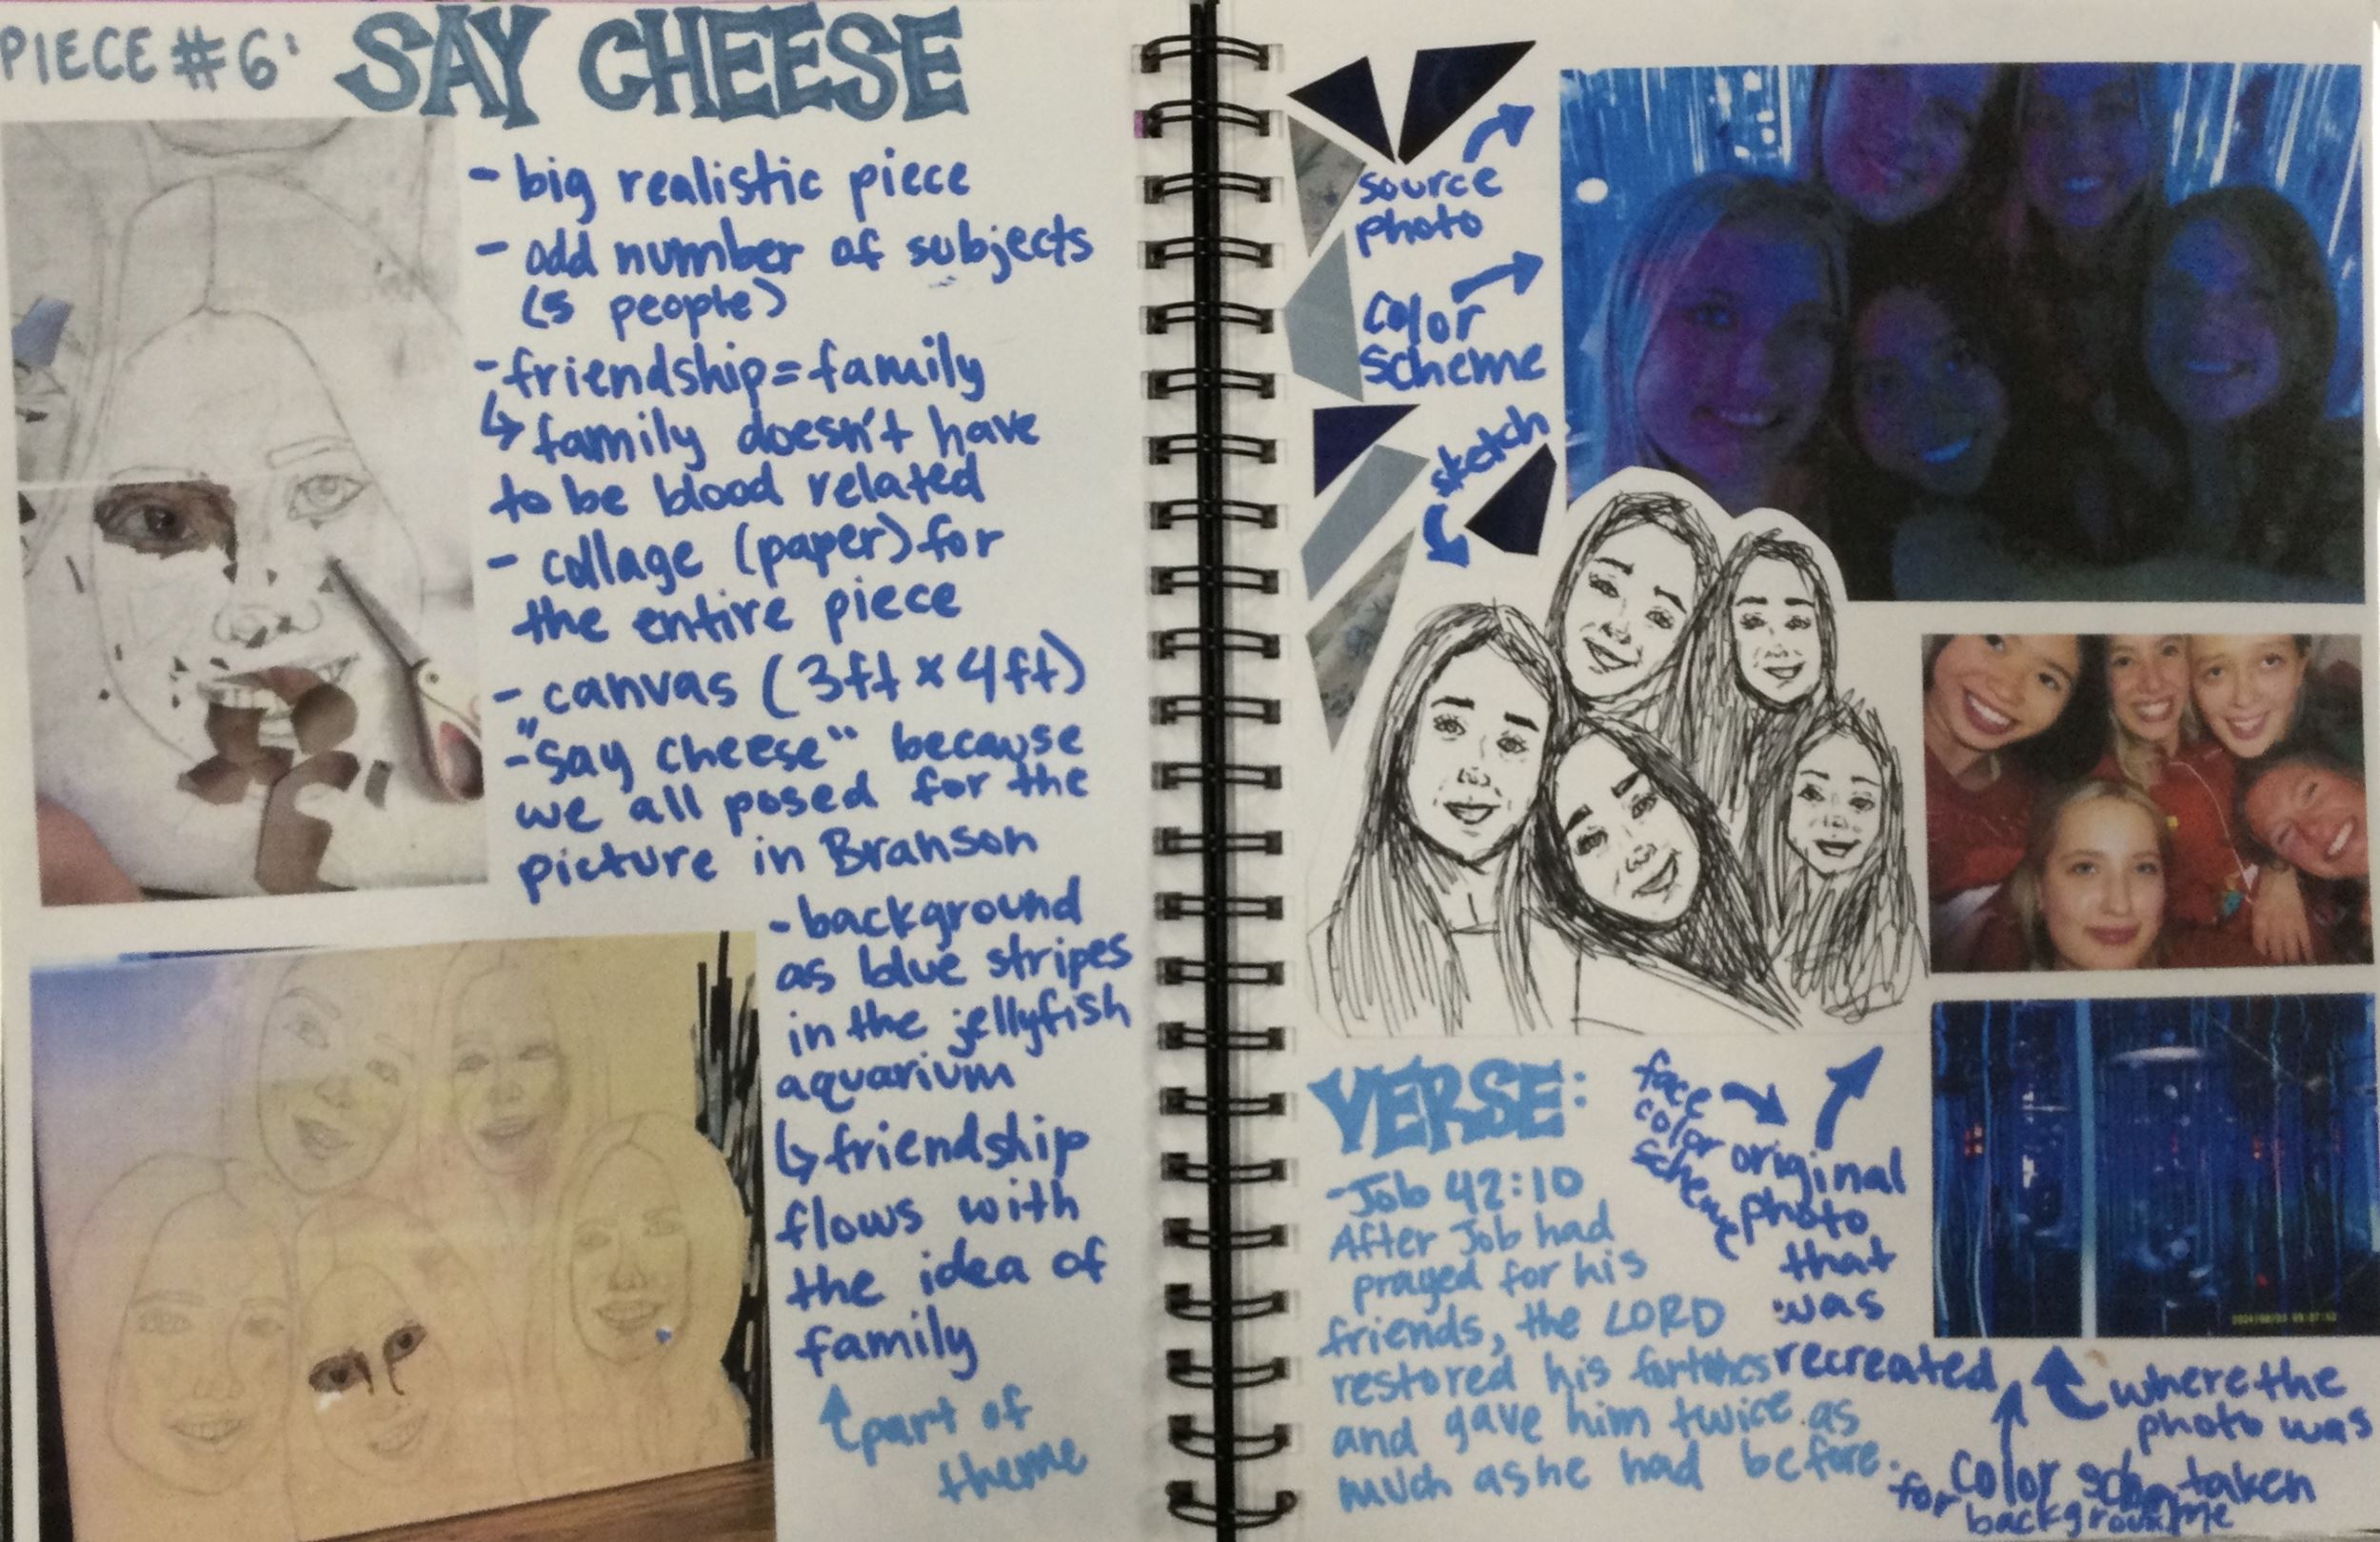 PIECE #6: SAY CHEESE
- big realistic piece
- odd number of subjects
(5 people)
- friendship = family
↳ family doesn't have
to be blood related
- collage (paper) for
the entire piece
- canvas (3ft x 4ft)
- "say cheese" because
we all posed for the
picture in Branson
- background
as blue stripes
in the jellyfish
aquarium
↳ friendship
flows with
the idea of
family
↑ part of
theme
source
photo
color
scheme
sketch
VERSE:
- Job 42:10
After Job had
prayed for his
friends, the LORD
restored his fortunes
and gave him twice as
much as he had before.
face
color
scheme
original
photo
that
was
recreated
where the
photo was
taken
color scheme
for background